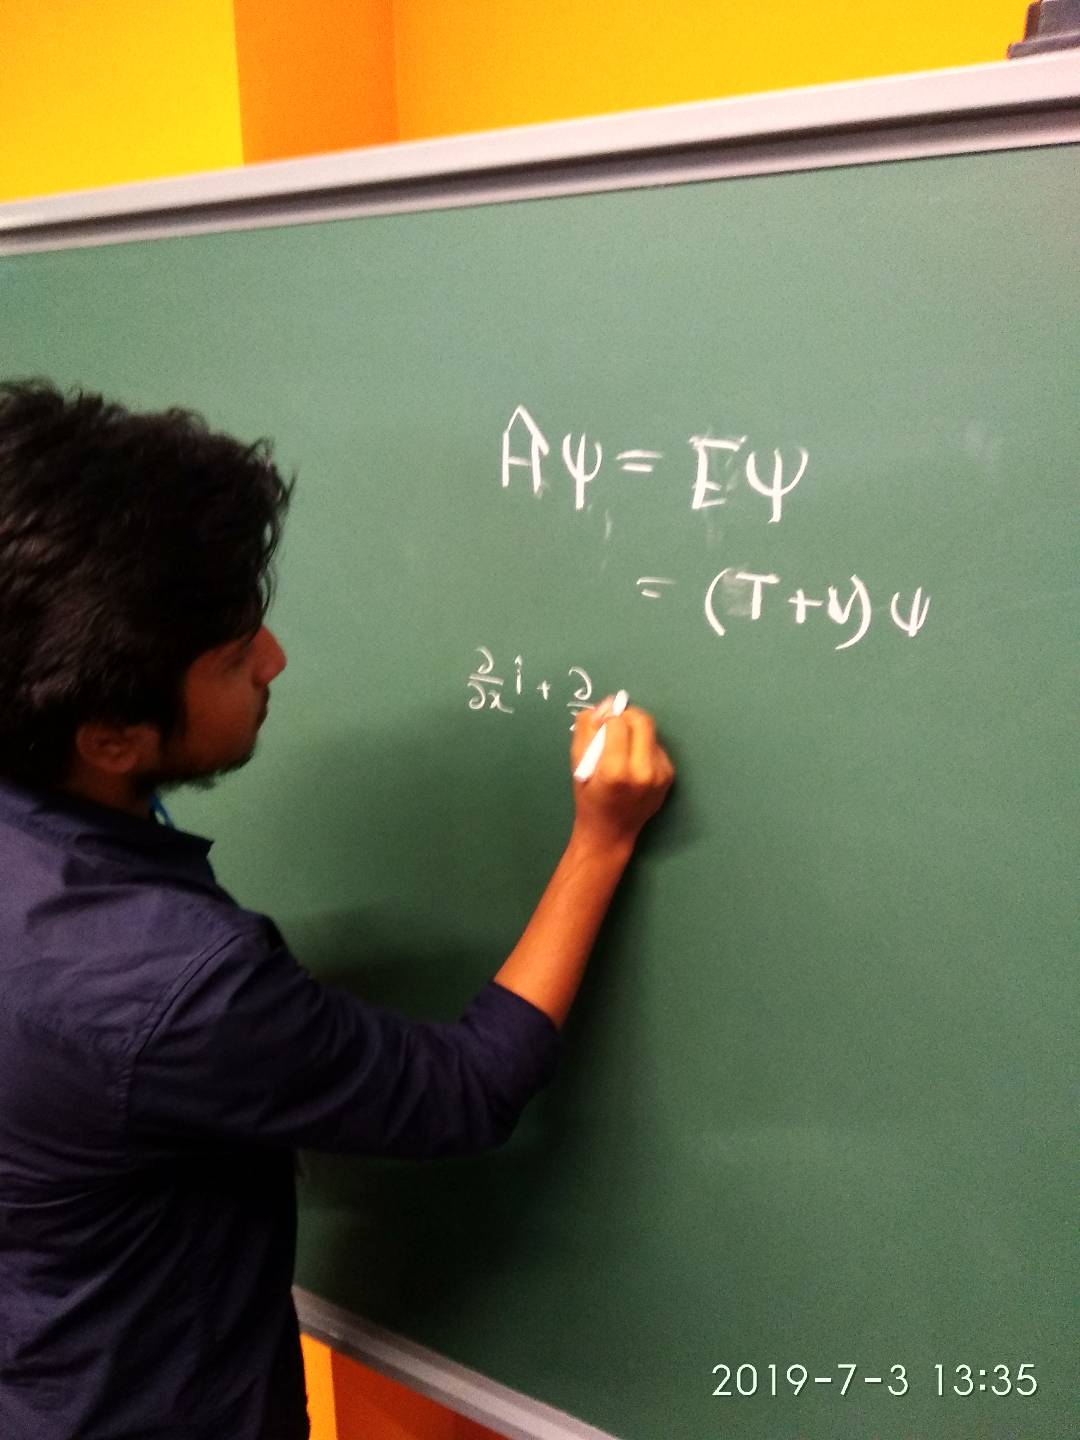 Ĥψ = Eψ
= (T+V)ψ
∂/∂x î + ∂
2019-7-3 13:35